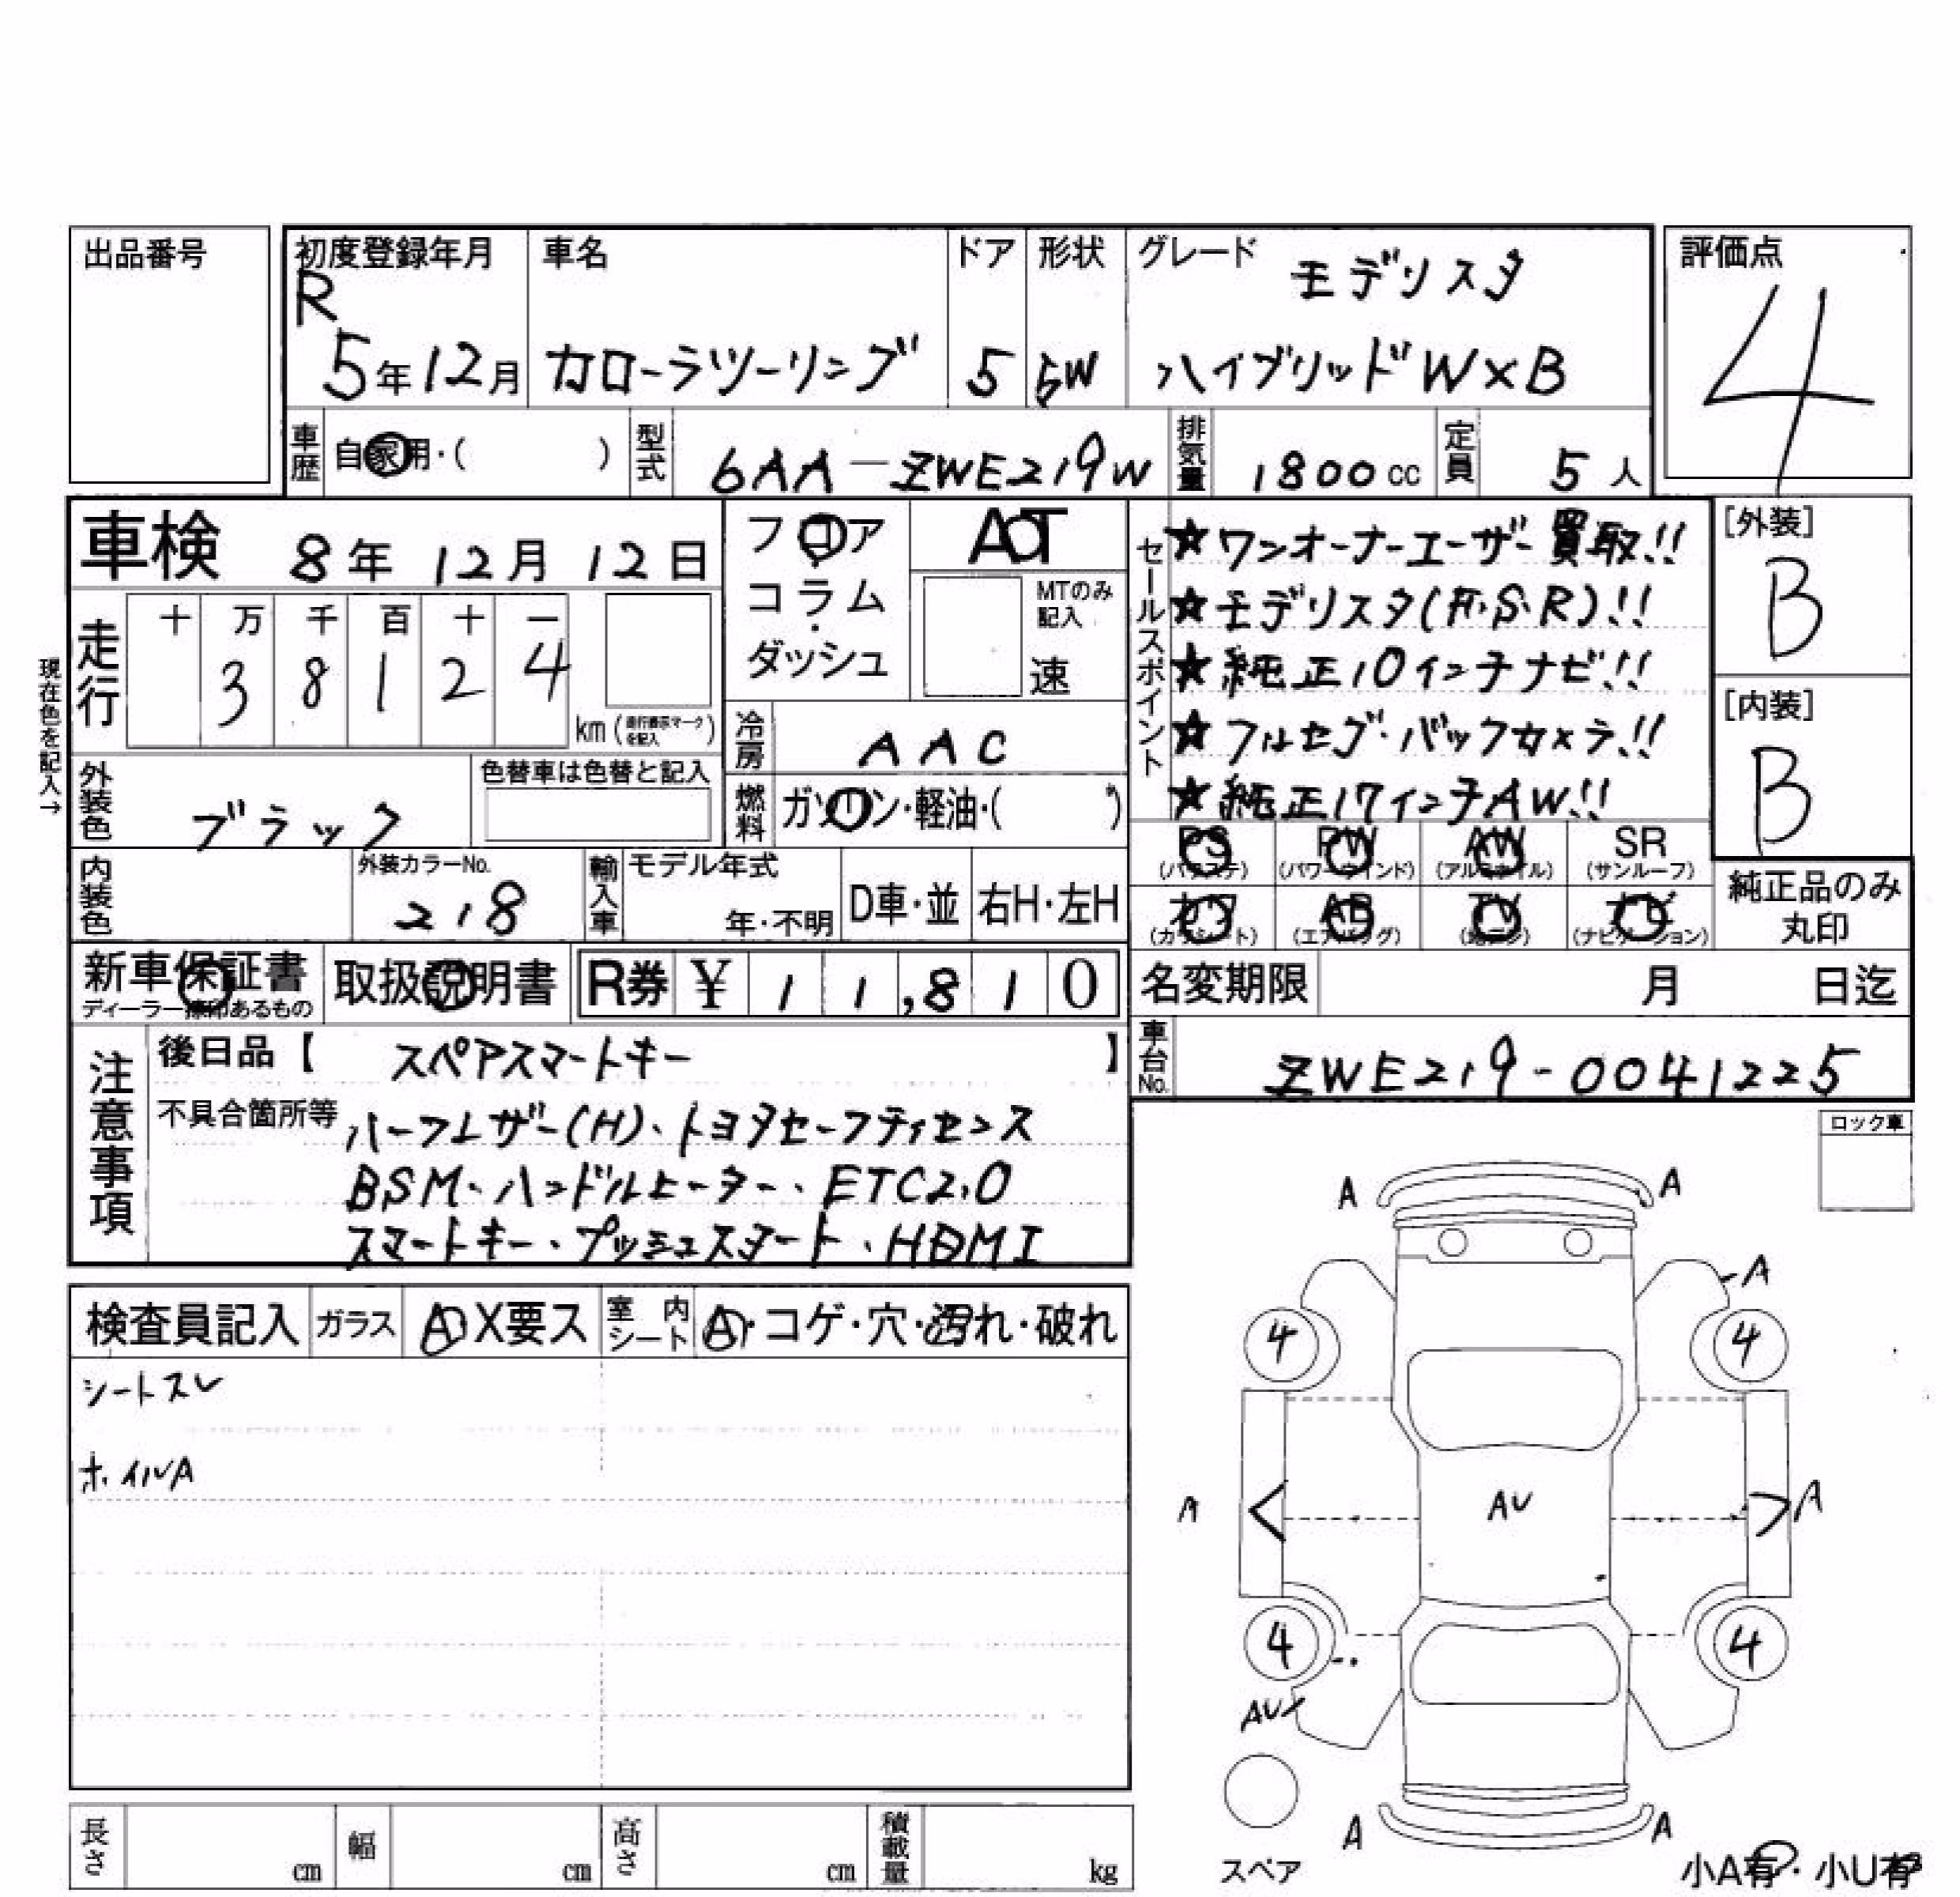 出品番号
初度登録年月 車名 ドア 形状 グレード モデリスタ 評価点
R
5年12月 カローラツーリング 5 5W ハイブリッドW×B 4
車歴 自家用・( ) 型式 6AA-ZWE219W 排気量 1800cc 定員 5人
車検 8年 12月 12日 フロア AT セールスポイント ★ワンオーナーユーザー買取!! [外装]
コラム MTのみ記入 ★モデリスタ(F・S・R)!! B
現在色を記入→ 走行 十 万 千 百 十 一
3 8 1 2 4 km(走行表示マークを記入) ダッシュ 速 ★純正10インチナビ!! [内装]
冷房 AAC ★フルセグ・バックカメラ!! B
外装色 ブラック 色替車は色替と記入 燃料 ガソリン・軽油・( ) ★純正17インチAW!!
PS(パワステ) PW(パワーウインド) AW(アルミホイル) SR(サンルーフ)
内装色 外装カラーNo. 218 輸入車 モデル年式 年・不明 D車・並 右H・左H カワ(カワシート) AB(エアバッグ) TV(地デジ) ナビ(ナビゲーション) 純正品のみ丸印
新車保証書 取扱説明書 R券 ¥ 11,810 名変期限 月 日迄
ディーラー捺印あるもの
注意事項 後日品【 スペアスマートキー 】 車台No. ZWE219-0041225
不具合箇所等 ハーフレザー(H)、トヨタセーフティセンス
BSM、ハンドルヒーター、ETC2.0
スマートキー、プッシュスタート、HDMI
ロック車
A A
A
検査員記入 ガラス A・X要ス 室内シート A・コゲ・穴・汚れ・破れ
4 4
シートスレ
ホイルA
A AU A
4 4
AU
A A
長さ cm 幅 cm 高さ cm 積載量 kg スペア 小A有・小U有